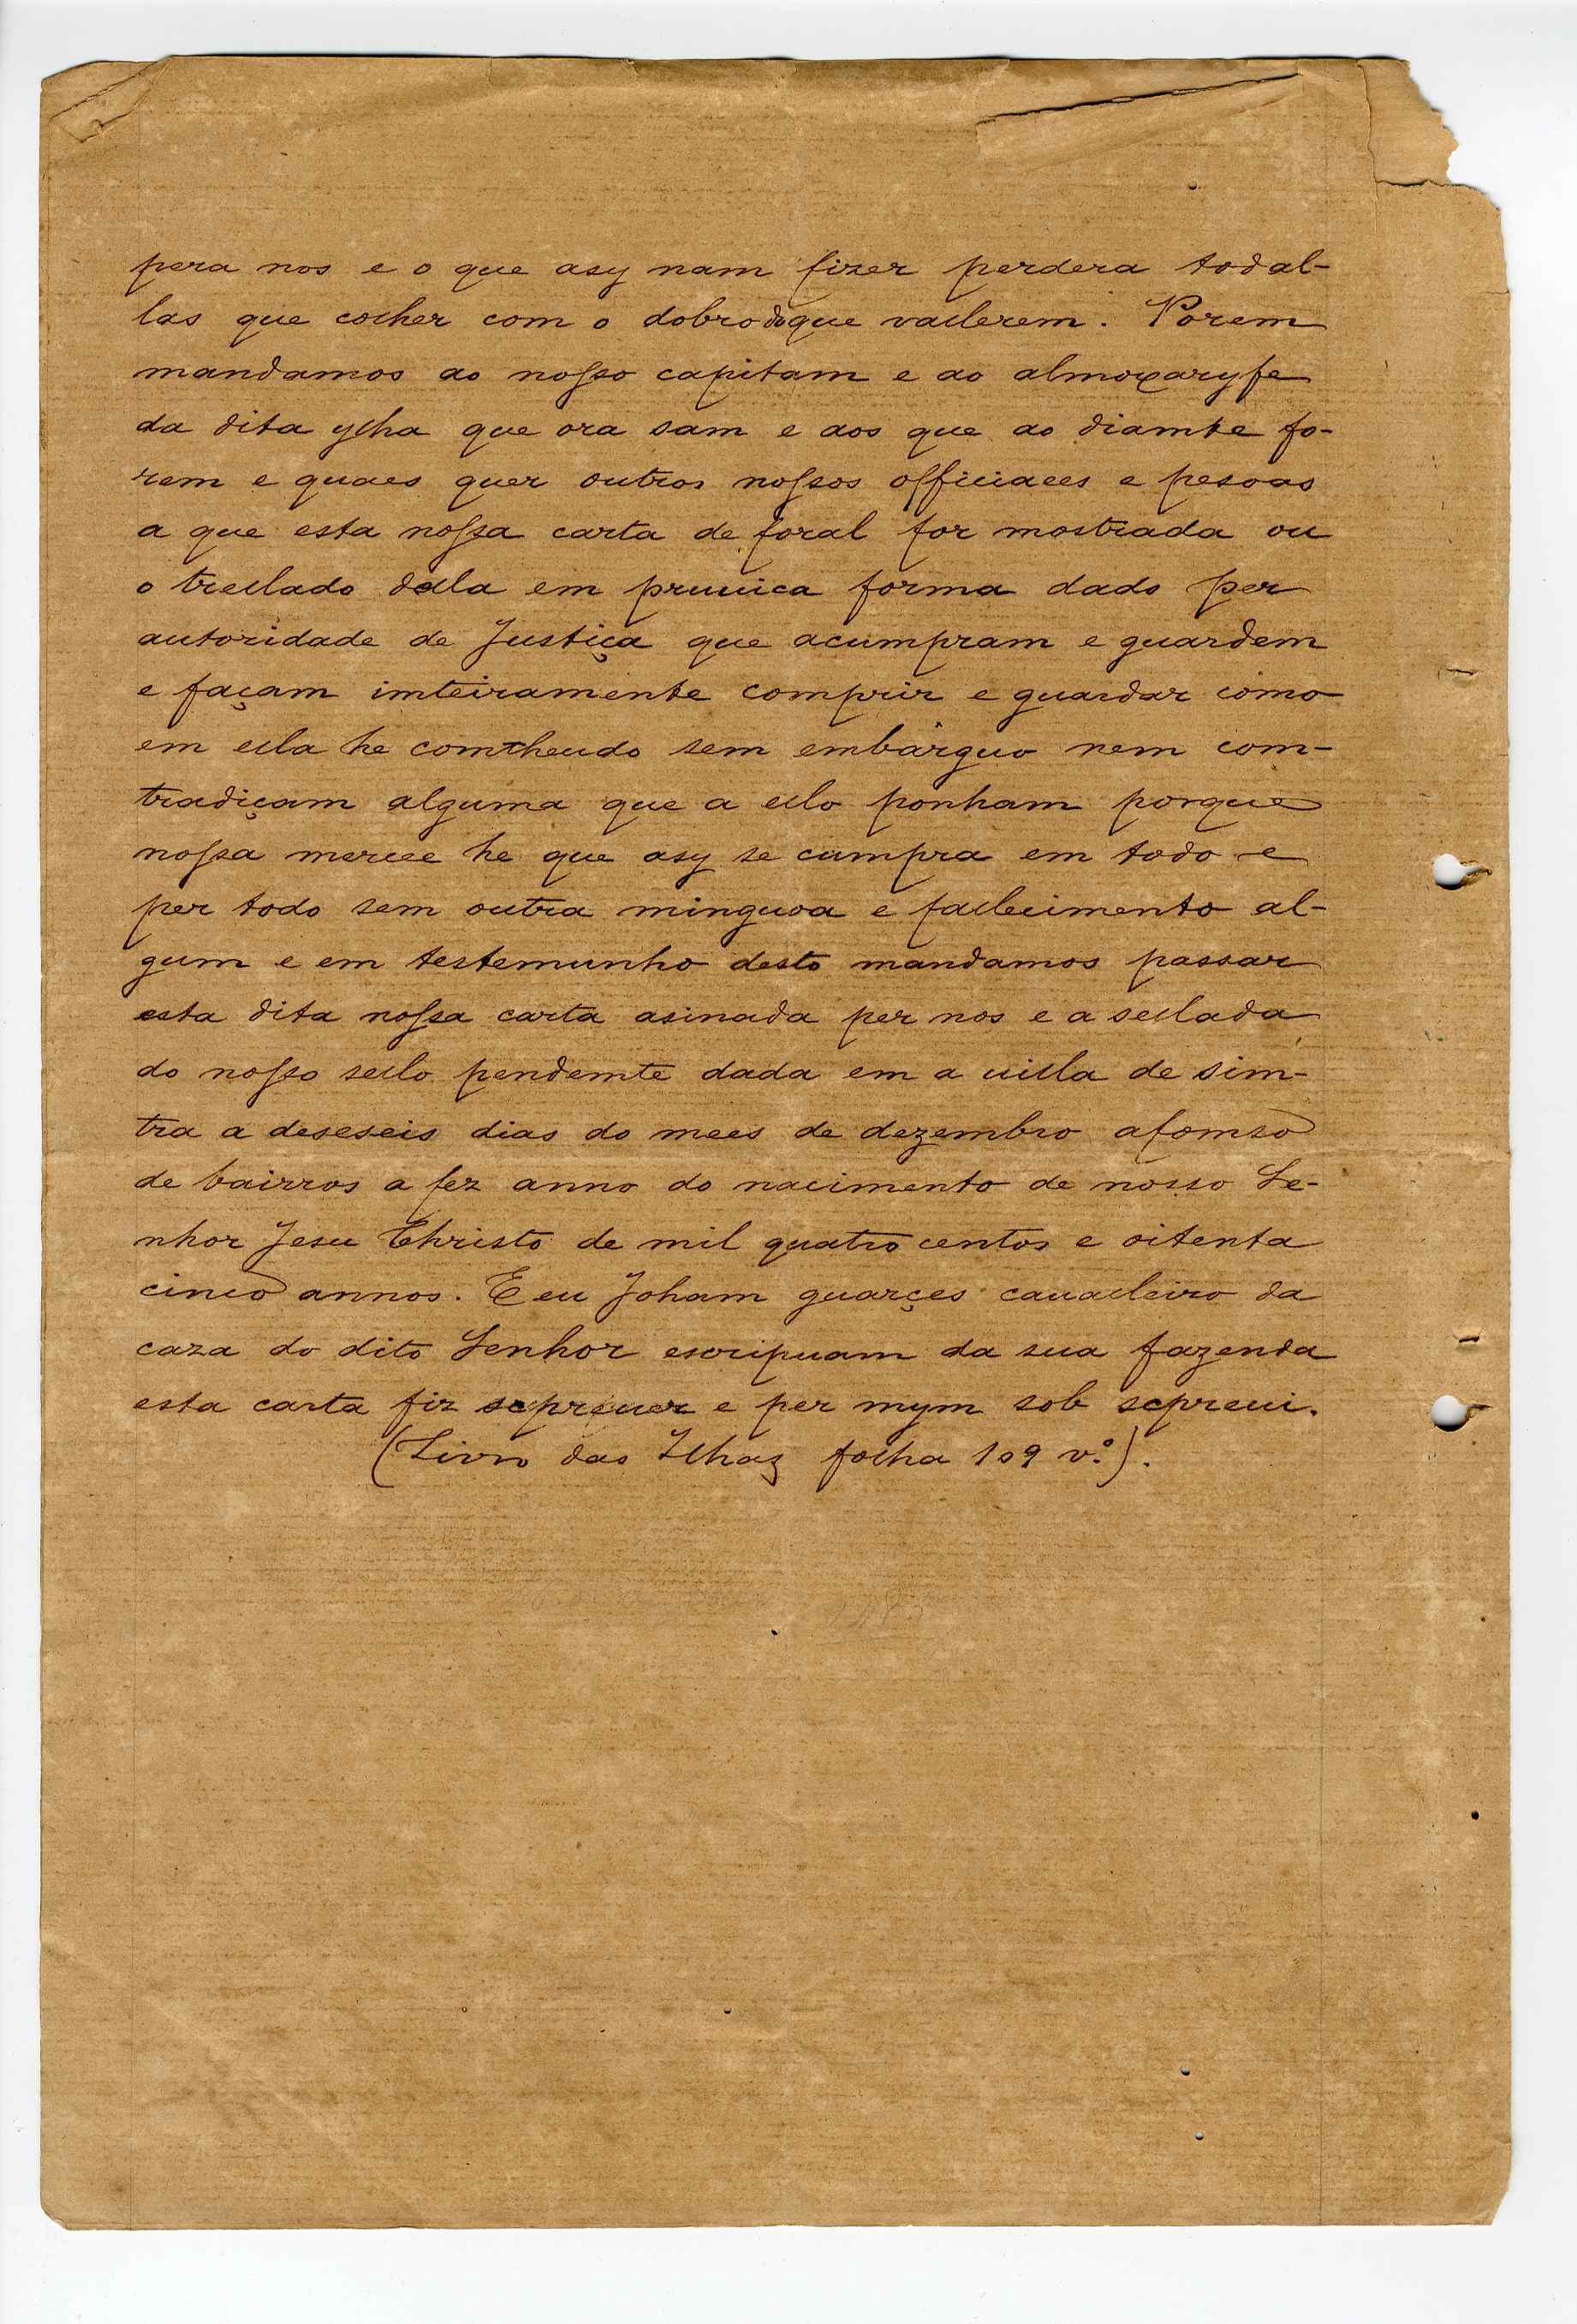 pera nos e o que asy nam fizer perdera todal-
las que colher com o dobro do que vallerem. Porem
mandamos ao nosso capitam e ao almoxaryfe
da dita ylha que ora sam e aos que ao diamte fo-
rem e quaes quer outros nossos officiaees e pesoas
a que esta nossa carta de foral for mostrada ou
o trellado della em pruuica forma dado per
autoridade de Justiça que acumpram e guardem
e façam imteiramente comprir e guardar como
em ella he comtheudo sem embarguo nem com-
tradiçam alguma que a ello ponham porque
nossa mercee he que asy se cumpra em todo e
per todo sem outra minguoa e fallecimento al-
gum e em testemunho desto mandamos passar
esta dita nossa carta asinada per nos e a sellada
do nosso sello pendemte dada em a uilla de sim-
tra a deseseis dias do mees de dezembro afomso
de bairros a fez anno do nacimento de nosso Se-
nhor Jesu Christo de mil quatro centos e oitenta
cinco annos. E eu Joham guarçes caualleiro da
caza do dito Senhor escripuam da sua fazenda
esta carta fiz scpreuer e per mym sob scpreui.
(Livro das Ilhas folha 109 v.º).